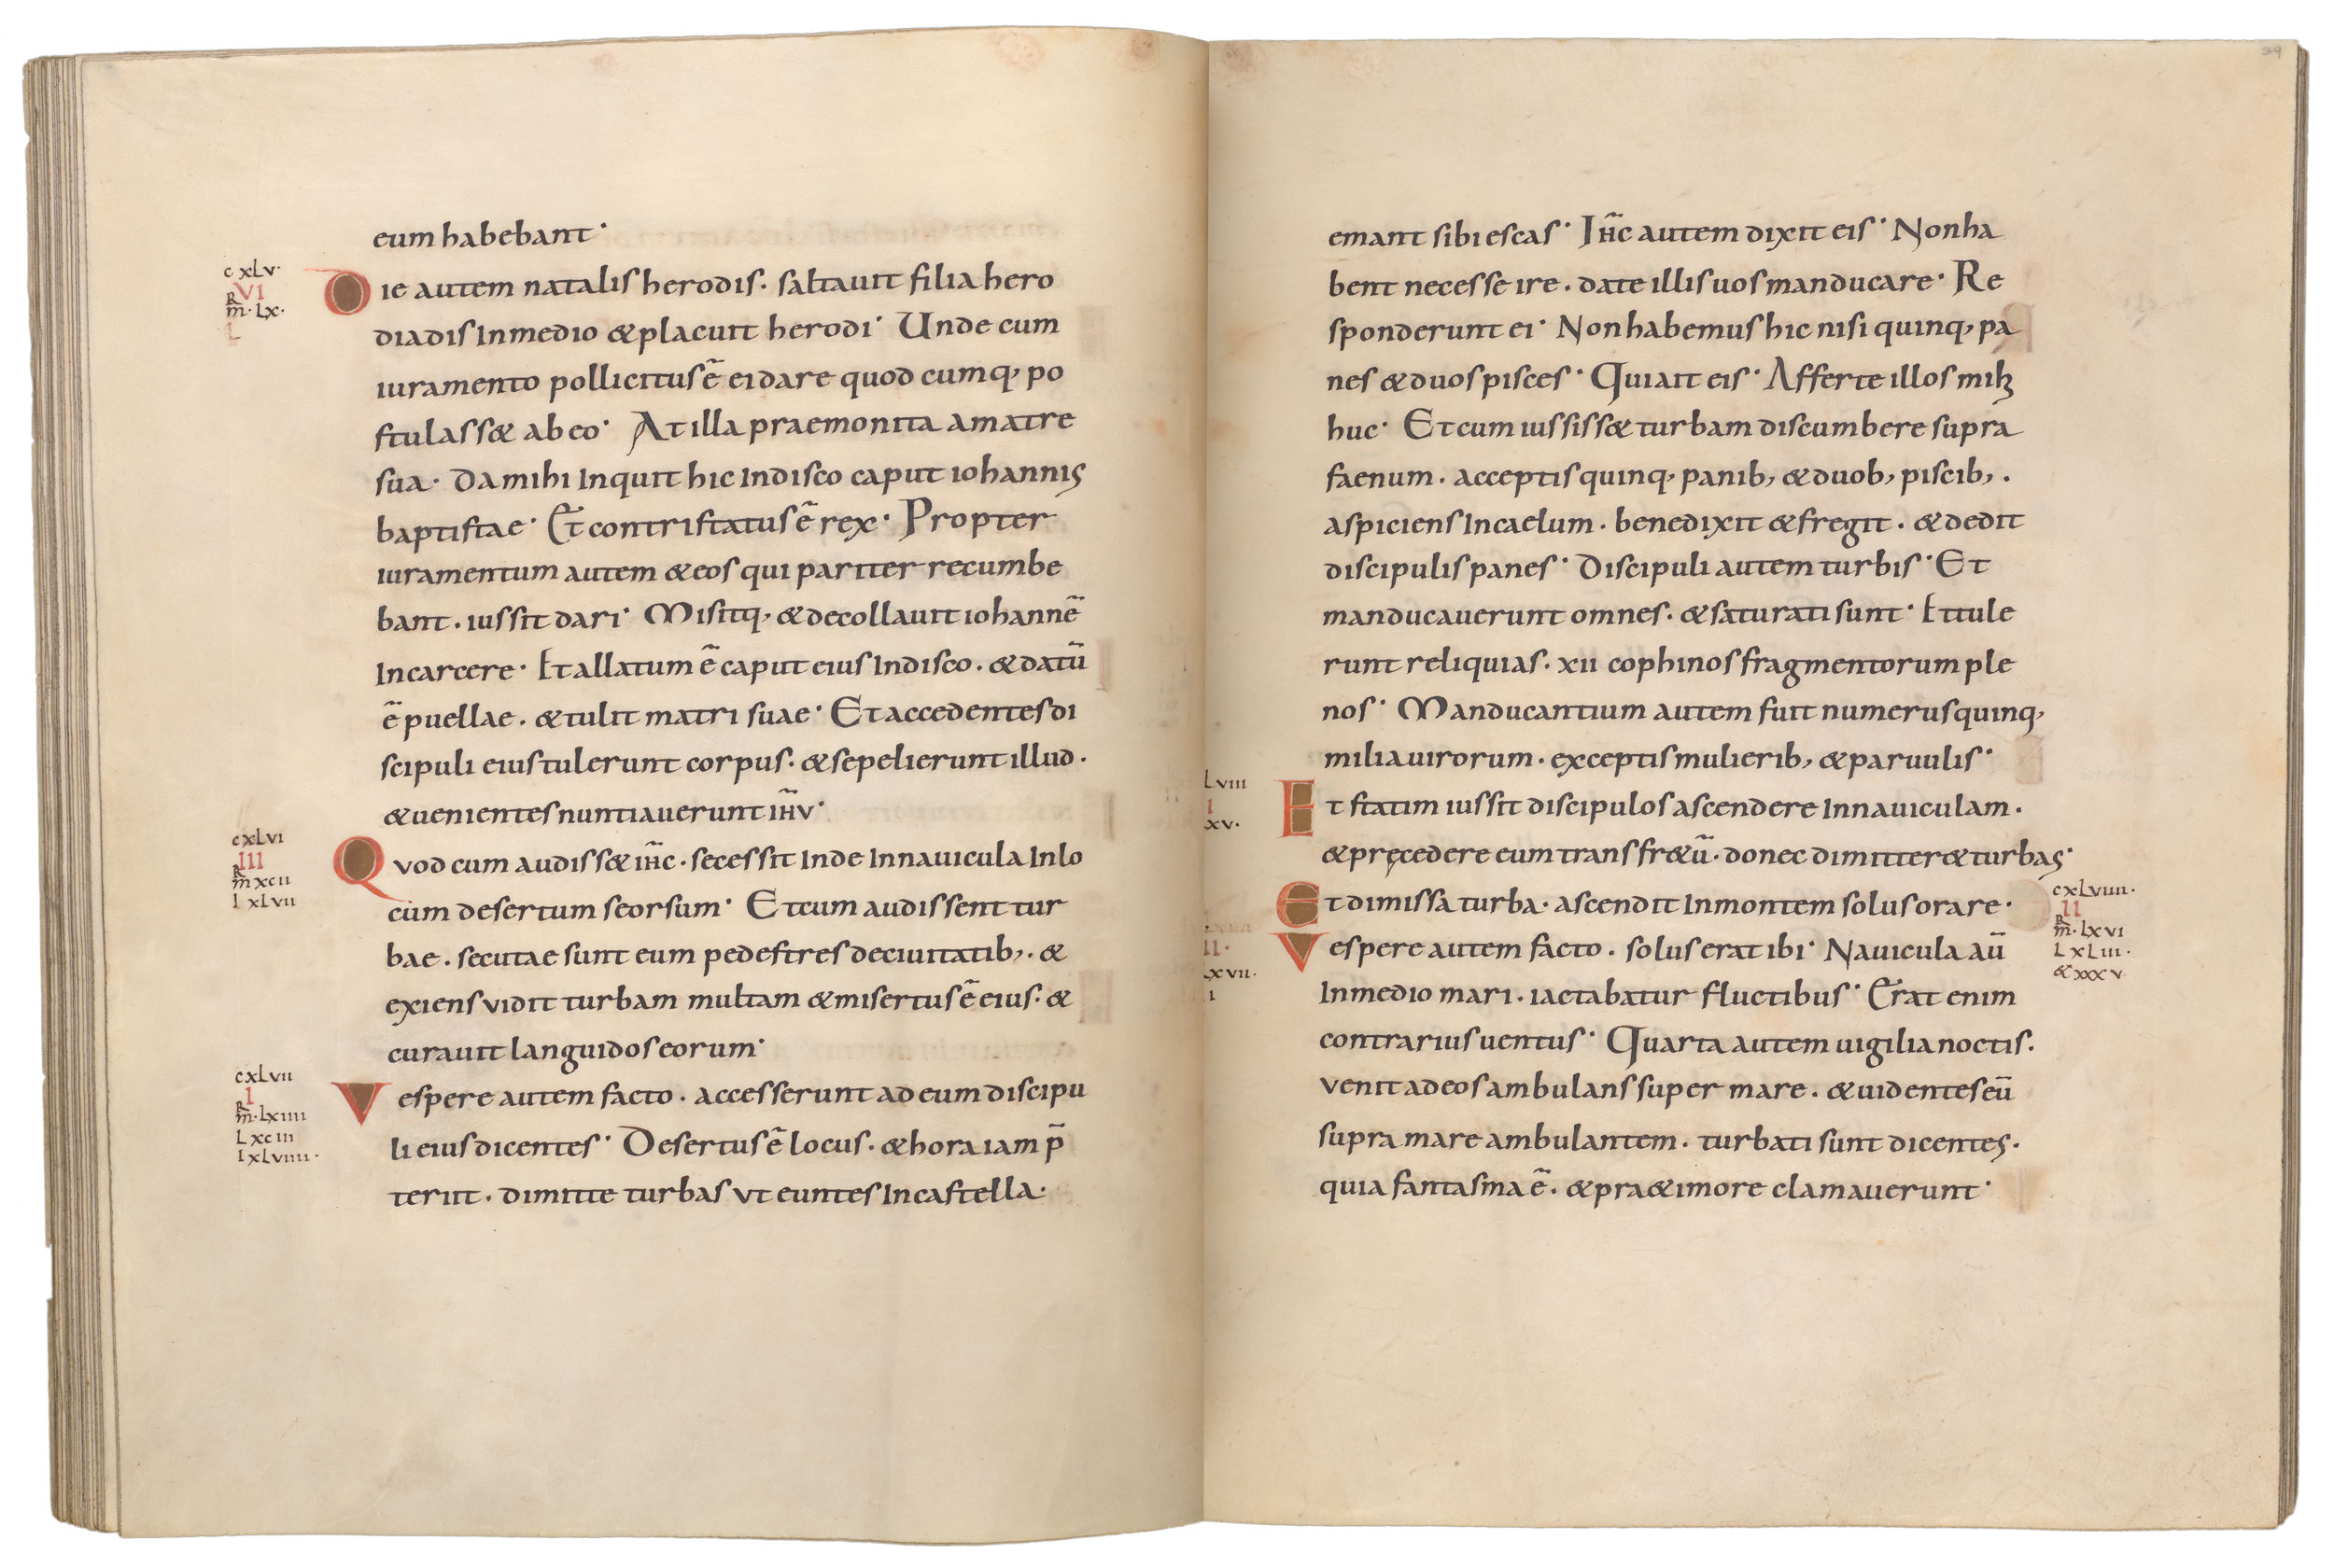 eum habebant·
cxlv·
VI
R
m̅·lx·
L
Die autem natalis herodis· saltauit filia hero
diadis In medio & placuit herodi· Unde cum
iuramento pollicitus ē ei dare quodcumq, po
stulass& ab eo· At illa praemonita a matre
sua· Da mihi Inquit hic In disco caput iohannis
baptistae· Et contristatus ē rex· Propter
iuramentum autem & eos qui pariter recumbe
bant· iussit dari· Misitq, & decollauit iohannē
In carcere· Et allatum ē caput eius In disco· & datū
ē puellae· & tulit matri suae· Et accedentes di
scipuli eius tulerunt corpus· & sepelierunt illud·
& uenientes nuntiauerunt ih̅u·
cxlvi
III
R
m xcii
l xlvii
Quod cum audiss& ih̅c· secessit Inde In nauicula In lo
cum desertum seorsum· Et cum audissent tur
bae· secutae sunt eum pedestres de ciuitatib,· &
exiens vidit turbam multam & misertus ē eius· &
curauit languidos eorum·
cxlvii
I
R
m·lxiiii
L xciii
I xlviiii·
Vespere autem facto· accesserunt ad eum discipu
li eius dicentes· Desertus ē locus· & hora iam p̄
teriit· dimitte turbas vt euntes In castella·
emant sibi escas· Ih̅c autem dixit eis· Non ha
bent necesse ire· date illis uos manducare· Re
sponderunt ei· Non habemus hic nisi quinq, pa
nes & duos pisces· Qui ait eis· Afferte illos mihi
huc· Et cum iussiss& turbam discumbere supra
faenum· acceptis quinq, panib, & duob, piscib,·
aspiciens In caelum· benedixit & fregit· & dedit
discipulis panes· Discipuli autem turbis· Et
manducauerunt omnes· & saturati sunt· Et tule
runt reliquias· xii cophinos fragmentorum ple
nos· Manducantium autem fuit numerus quinq,
milia uirorum· exceptis mulierib, & paruulis·
Lviii
I
xv·
Et statim iussit discipulos ascendere In nauiculam·
& pręcedere eum trans fr&ū· donec dimitter& turbas·
Et dimissa turba· ascendit In montem solus orare·
cxlviiii·
II
R
m·lxvi
L xliii·
& xxxv
II·
xvii·
I
Vespere autem facto· solus erat ibi· Nauicula aū
In medio mari· iactabatur fluctibus· Erat enim
contrarius uentus· Quarta autem uigilia noctis·
venit ad eos ambulans super mare· & uidentes eū
supra mare ambulantem· turbati sunt dicentes·
quia fantasma ē· & prae timore clamauerunt·